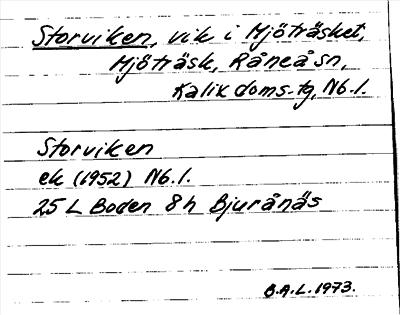 Storviken, vik i Mjöträsket,
Mjöträsk, Råneå sn,
Kalix doms.tg, Nb.l.
Storviken
ek (1952) Nb.l.
25 L Boden 8h Bjurånäs
B.A.L. 1973.